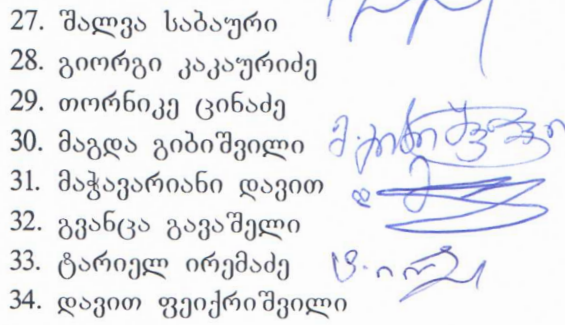 27. შალვა საბაური
28. გიორგი კაკაურიძე
29. თორნიკე ცინაძე
30. მაგდა გიბიშვილი
31. მაჭავარიანი დავით
32. გვანცა გავაშელი
33. ტარიელ ირემაძე
34. დავით ფეიქრიშვილი